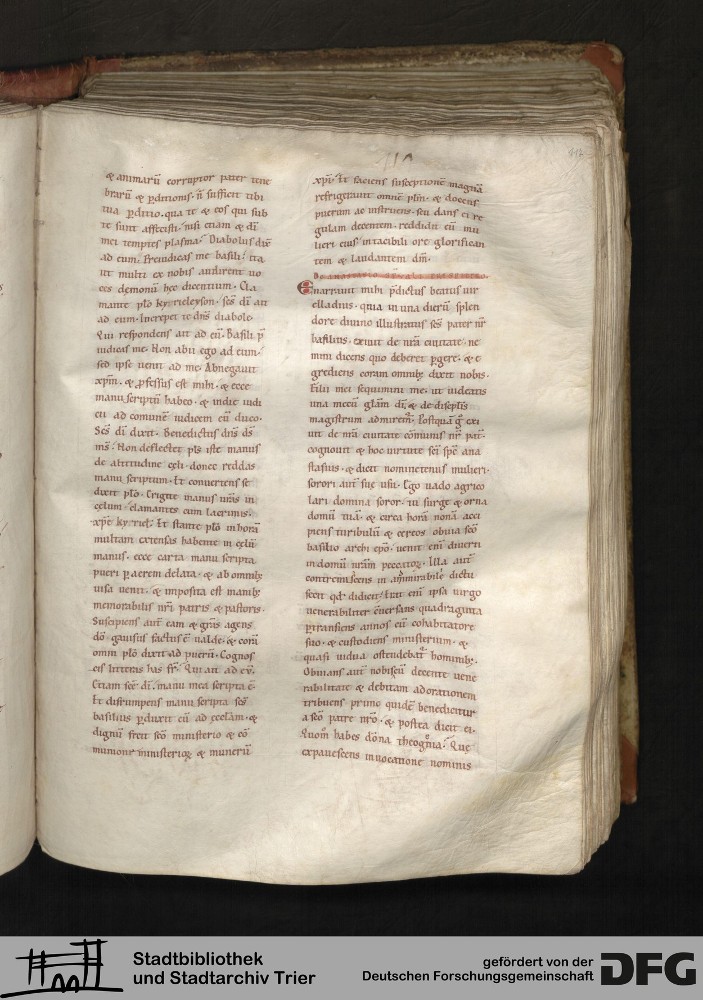 & animarū corruptor pater tene
brarū & p̄ditionis. n̄ sufficit tibi
tua p̄ditio. qua te & eos qui sub
te sunt affecisti. nisi etiam & dī
mei temptes plasma? Diabolus dix̄
ad eum. Preiudicas me basili. ita
ut multi ex nobis audirent uo
ces demonū hec dicentium. Cla
mante plō kyrieleyson. Sēs dī ait
ad eum. Increpet te dn̄s diabole.
Qui respondens ait ad eū. Basili p̄
iudicas me. Non abii ego ad eum.
sed ipse uenit ad me. Abnegauit
xp̄m. & p̄fessus est mihi. & ecce
manu scriptū habeo. & in die iudi
cii ad comunē iudicem eū duco.
Sēs dī dixit. Benedictus dn̄s dī
mī. Non deflectet pl̄s iste manus
de altitudine cęli. donec reddas
manu scriptum. Et conuertens se
dixit plō. Erigite manus ur̄as in
cęlum. clamantes cum lacrimis.
xp̄e kyriel. Et stante plō in horā
multam extensas habente in cęlū
manus. ecce carta manu scripta
pueri p̄ aerem delata. & ab omnib;
uisa uenit. & imposita est manib;
memorabilis nr̄i patris & pastoris.
Suscipiens aut̄ eam & gr̄as agens
dō. gauisus factus ē ualde. & corā
omni plō dixit ad puerū. Cognos
cis litteras has fr̄. Qui ait ad eū.
Etiam sc̄e dī. manu mea scripta ē.
Et disrumpens manu scripta sēs
basilius p̄duxit eū ad ęcclam. &
dignū fecit scō ministerio & cō
munione ministerioꝝ & munerū
xp̄i. Et faciens susceptionē magnā
refrigerauit omnē plm̄. & docens
puerum ac instruens. seu dans ei re
gulam decentem. reddidit eū mu
lieri eius intacibili ore glorifican
tem & laudantem dm̄.
Enarrauit mihi p̄dictus beatus uir
elladius. quia in una dierū splen
dore diuino illustratus sēs pater nr̄
basilius. exiuit de nr̄a ciuitate. ne
mini dicens quo deberet p̄gere. & e
grediens coram omnib; dixit nobis.
Filii mei sequimini me. ut uideatis
una mecū gl̄am dī. & de discipl̄is
magistrum admiremī. Postquā ḡ exi
uit de nr̄a ciuitate cōmunis nr̄ pat̄.
cognouit & hoc uirtute scī sp̄c ana
stasius. & dicit nominetenus mulieri.
sorori aut̄ suę usū. Ego uado agrico
lari domina soror. tu surge & orna
domū tuā. & circa horā nonā acci
piens turibulū & cereos obuia scō
basilio archi ep̄o. uenit enī diuerti
in domū nr̄am peccatoꝝ. Illa aut̄
contremiscens in ammirabile dictū
fecit qd̄ didicit. Erat enī ipsa uirgo
uenerabiliter cūersans quadraginta
p̄transiens annos cū cohabitatore
suo. & custodiens ministerium. &
quasi uidua ostendebat̄ hominib;.
Obuians aut̄ nobiscū decente uene
rabilitate & debitam adorationem
tribuens primo quidē benedicitur
a scō patre nr̄o. & postea dicit ei.
Quom̄ habes dōna theogn̄ia. Que
expauescens inuocatione nominis
Stadtbibliothek
und Stadtarchiv Trier
gefördert von der
Deutschen Forschungsgemeinschaft
DFG